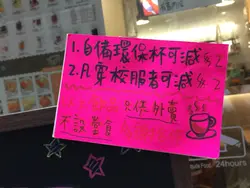 1.自備環保杯可減$2
2.凡穿校服者可減$2
只供外賣
不設堂食
24hours